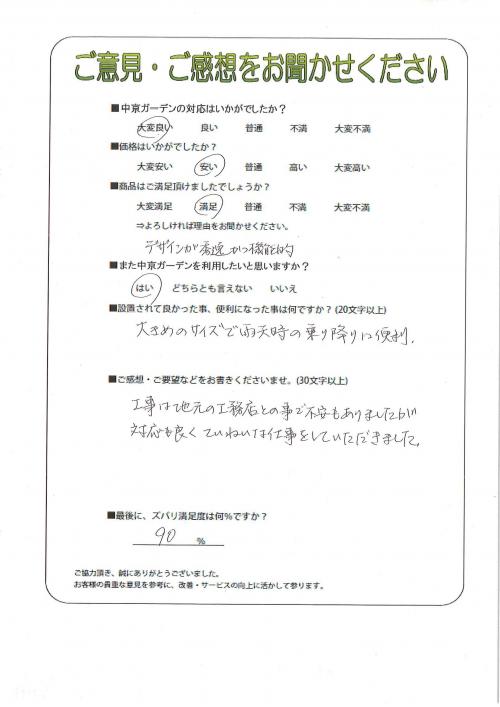 ご意見・ご感想をお聞かせください
■中京ガーデンの対応はいかがでしたか？
大変良い 良い 普通 不満 大変不満
■価格はいかがでしたか？
大変安い 安い 普通 高い 大変高い
■商品はご満足頂けましたでしょうか？
大変満足 満足 普通 不満 大変不満
⇒よろしければ理由をお聞かせください。
デザインが秀逸かつ機能的
■また中京ガーデンを利用したいと思いますか？
はい どちらとも言えない いいえ
■設置されて良かった事、便利になった事は何ですか？(20文字以上)
大きめのサイズで雨天時の乗り降りに便利.
■ご感想・ご要望などをお書きくださいませ。(30文字以上)
工事は地元の工務店との事で不安もありましたが
対応も良くていねいな仕事をしていただきました。
■最後に、ズバリ満足度は何%ですか？
90 %
ご協力頂き、誠にありがとうございました。
お客様の貴重な意見を参考に、改善・サービスの向上に活かして参ります。